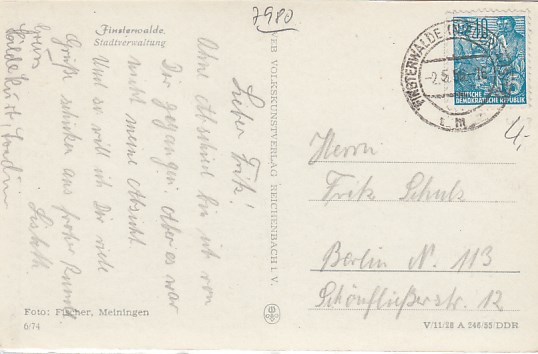 7980
Finsterwalde,
Stadtverwaltung
Lieber Fritz!
Ohne Abschied bin ich von
Dir gegangen. Aber es war
nicht meine Absicht.
Und so will ich Dir viele
Grüße schicken aus froher Runde
Gruss
VEB VOLKSKUNSTVERLAG REICHENBACH I. V.
Foto: Fischer, Meiningen
6/74
FINSTERWALDE
10
DEUTSCHE
DEMOKRATISCHE REPUBLIK
4,-
Herrn
Fritz Schulz
Berlin N. 113
Schönfließerstr. 12
V/11/28 A 246/55 DDR